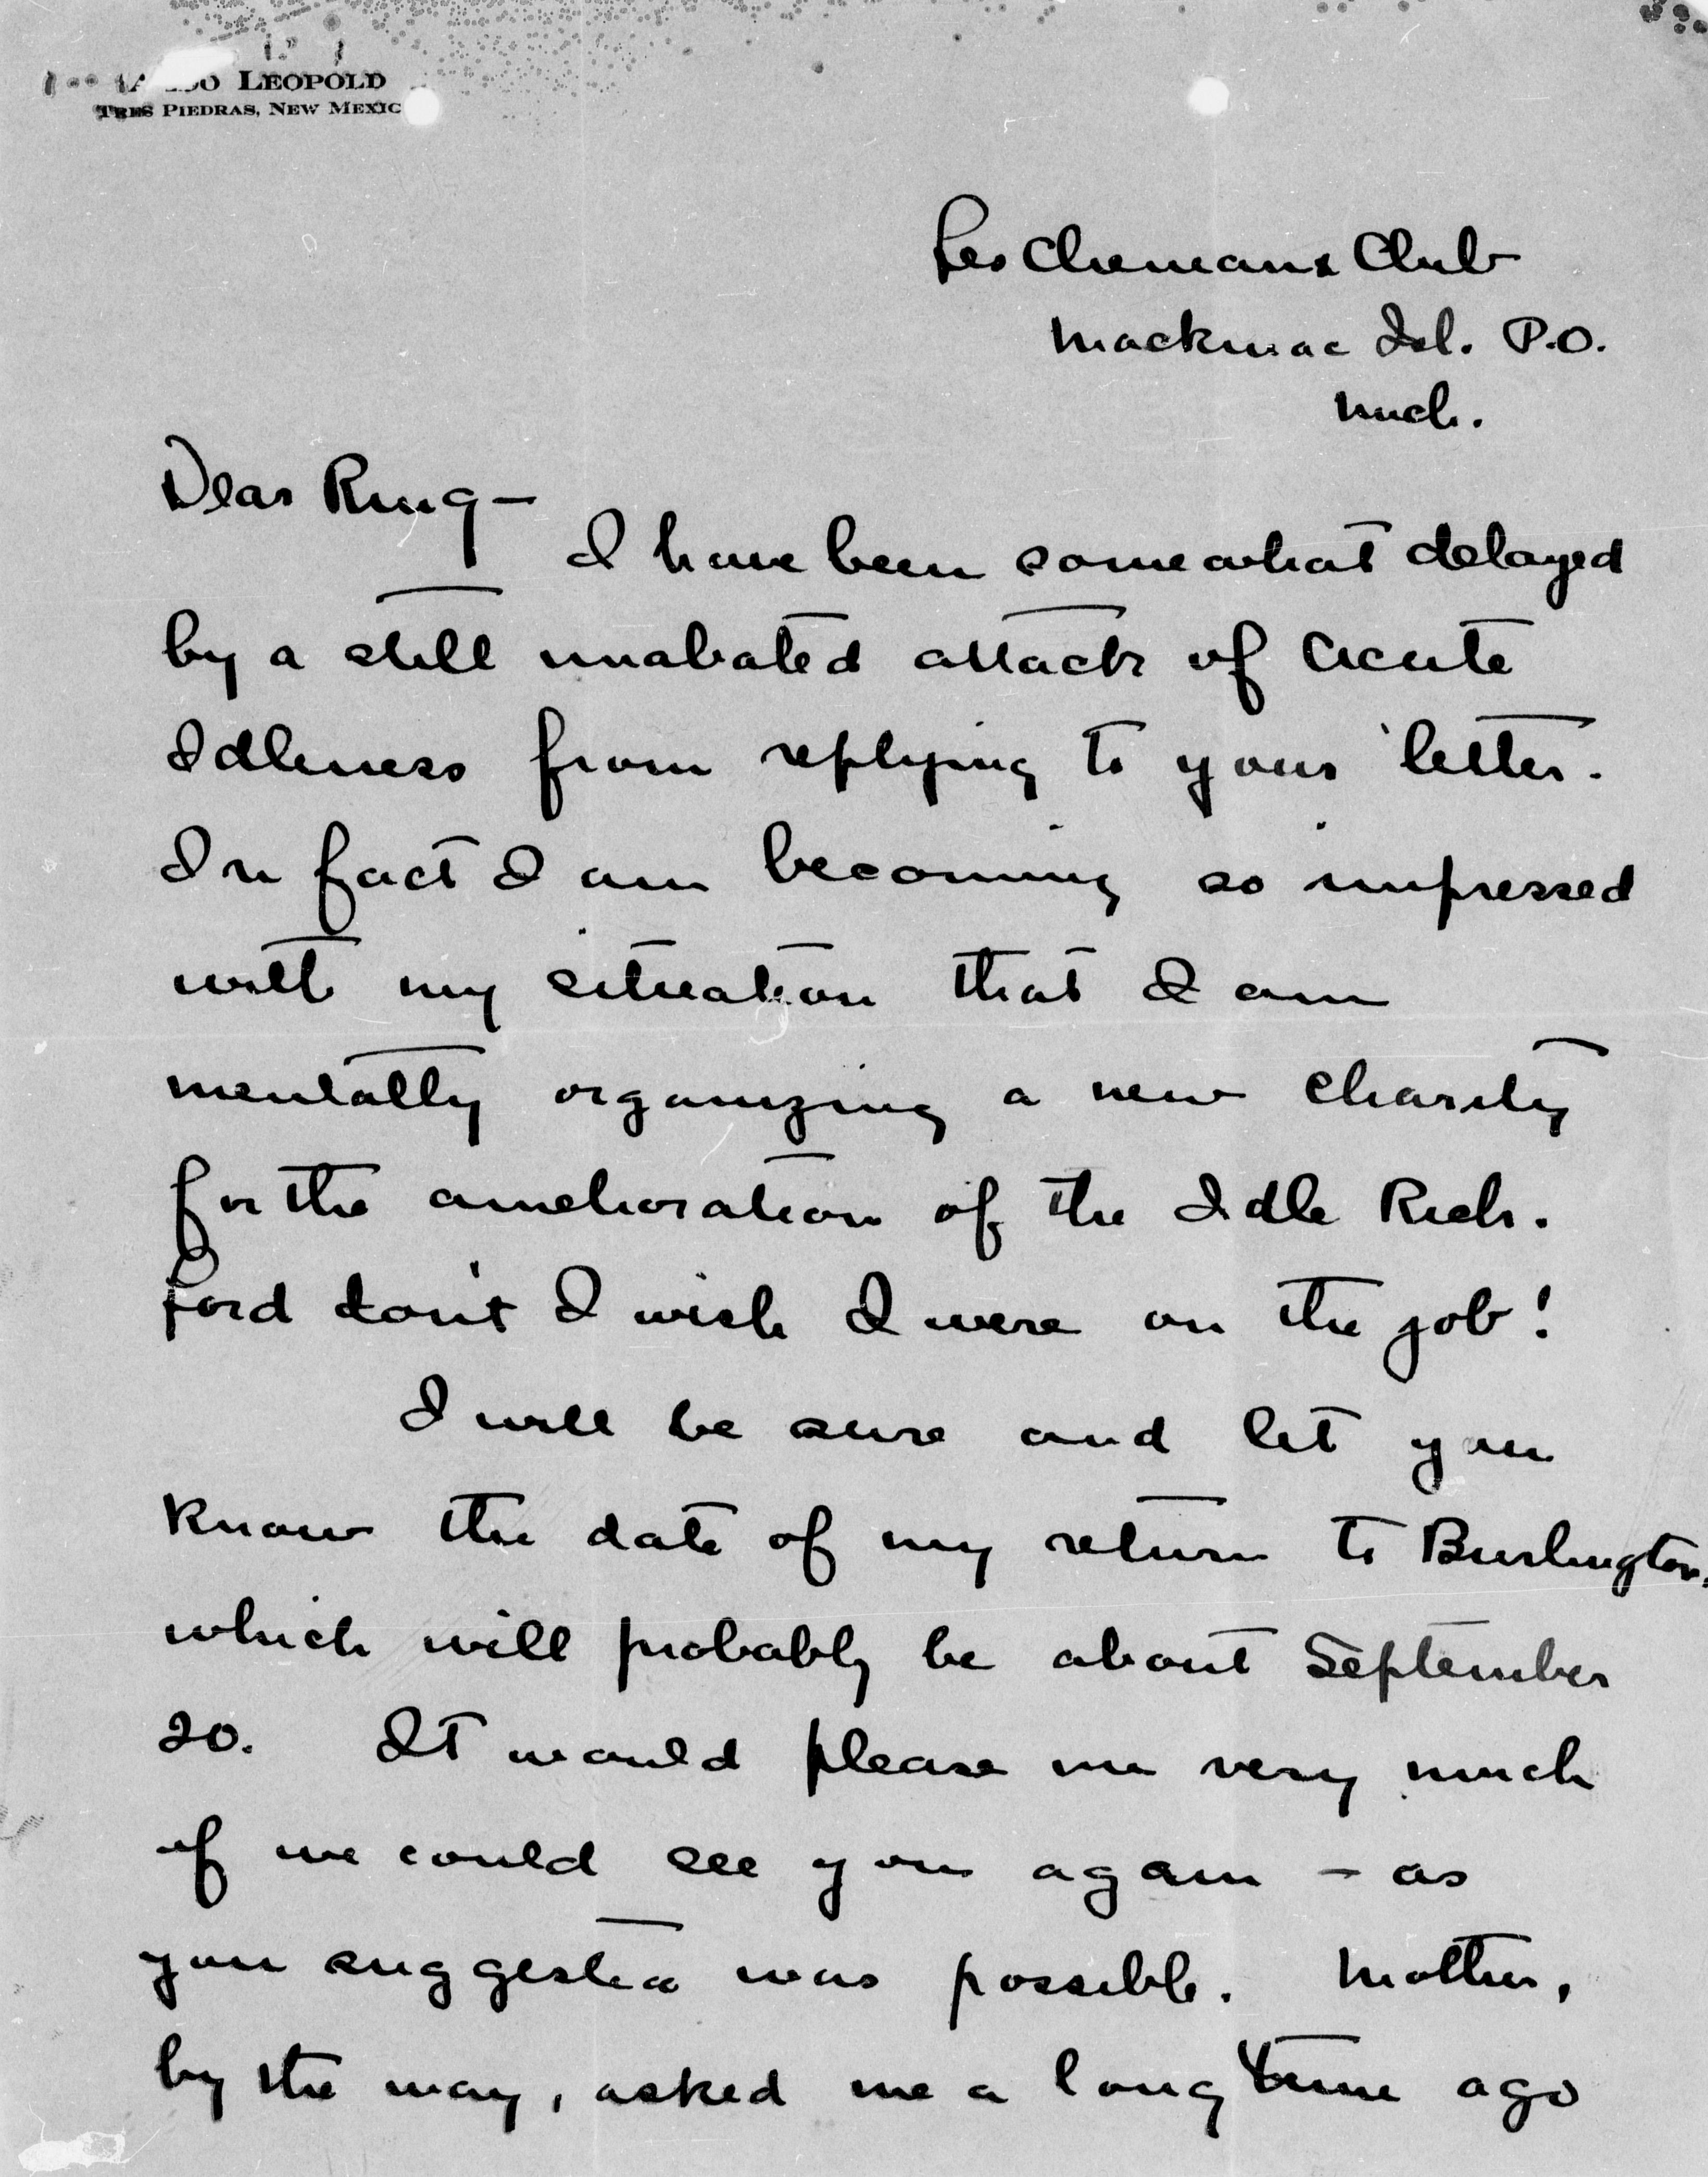 LEOPOLD
TRES PIEDRAS, NEW MEXIC
Les Cheneaux Club
Mackinac Isl. P.O.
Mich.
Dear Ring –
I have been somewhat delayed
by a still unabated attack of Acute
Idleness from replying to your letter.
In fact I am becoming so impressed
with my situation that I am
mentally organizing a new charity
for the amelioration of the Idle Rich.
Lord don't I wish I were on the job!
I will be sure and let you
know the date of my return to Burlington,
which will probably be about September
20. It would please me very much
if we could see you again – as
you suggested was possible. Mother,
by the way, asked me a long time ago